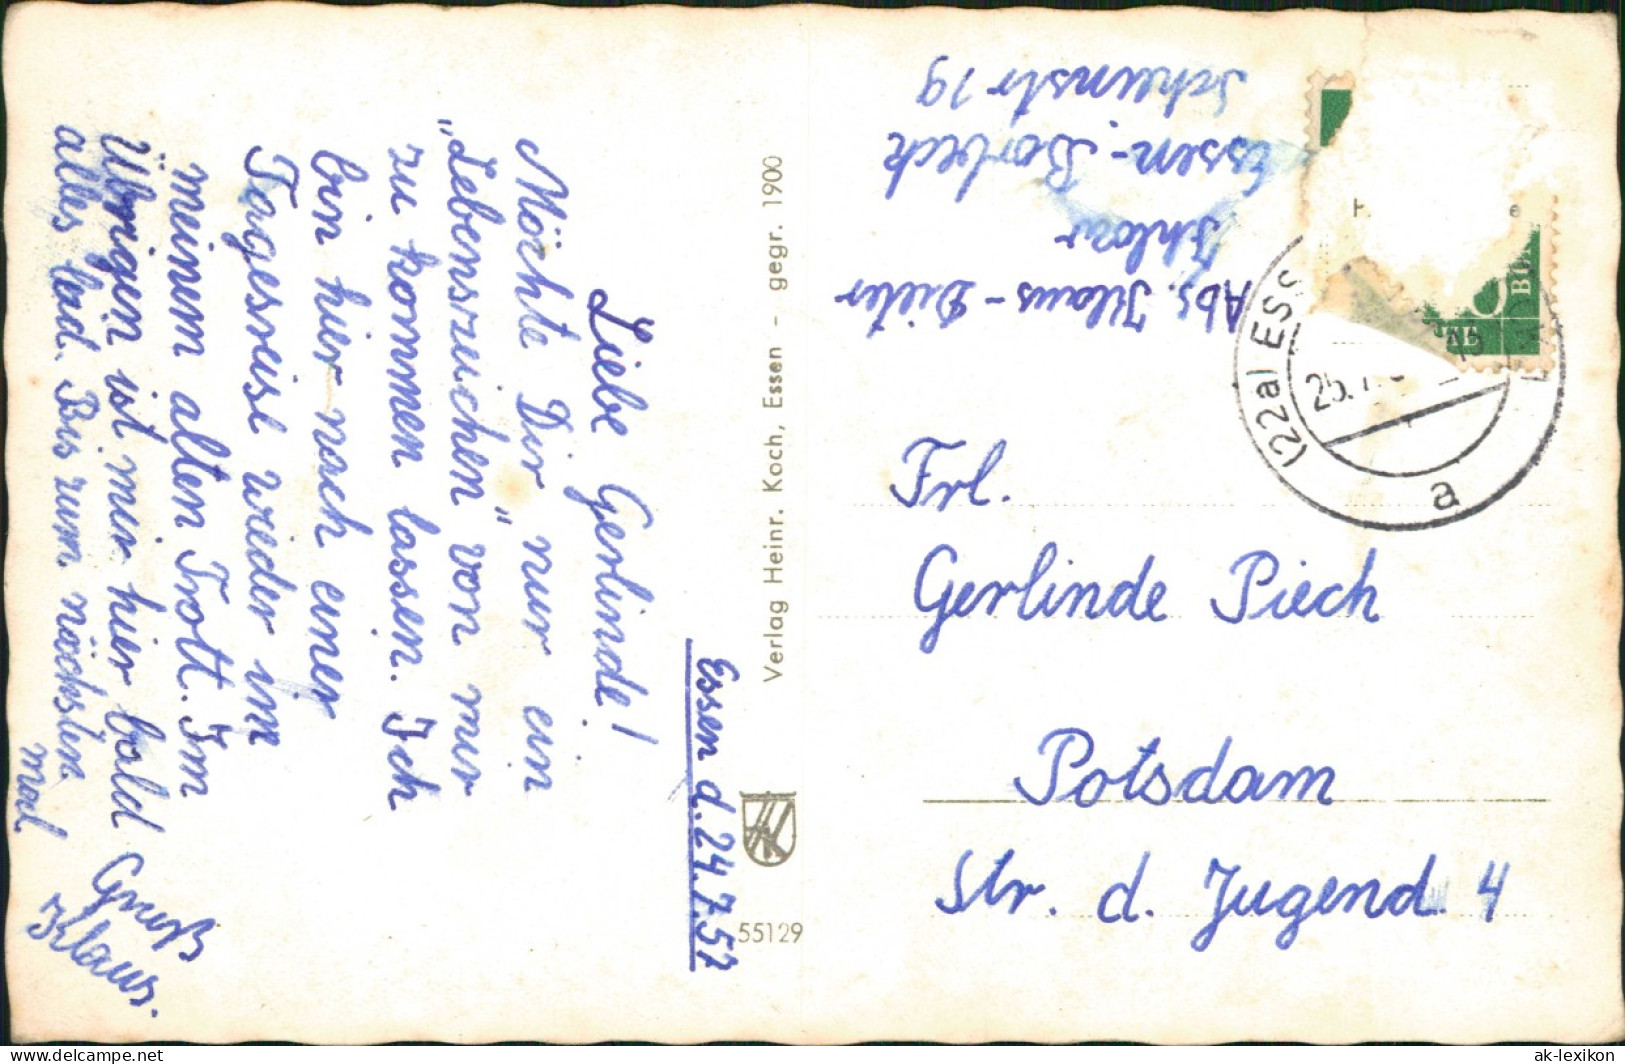 Essen d. 24.7.57
Liebe Gerlinde!
Möchte Dir nur ein
„Lebenszeichen" von mir
zu kommen lassen. Ich
bin hier nach einer
Tagesreise wieder im
meinem alten Trott. Im
Übrigen ist mir hier bald
alles leid. Bis zum nächsten
mal
Gruß
Klaus.
Verlag Heinr. Koch, Essen - gegr. 1900
55129
Abs. Klaus-Dieter
Essen-Borbeck
19
(22a) ESS
25.7.
a
BUN
Frl.
Gerlinde Piech
Potsdam
Str. d. Jugend 4
delcampe.net
ak-lexikon